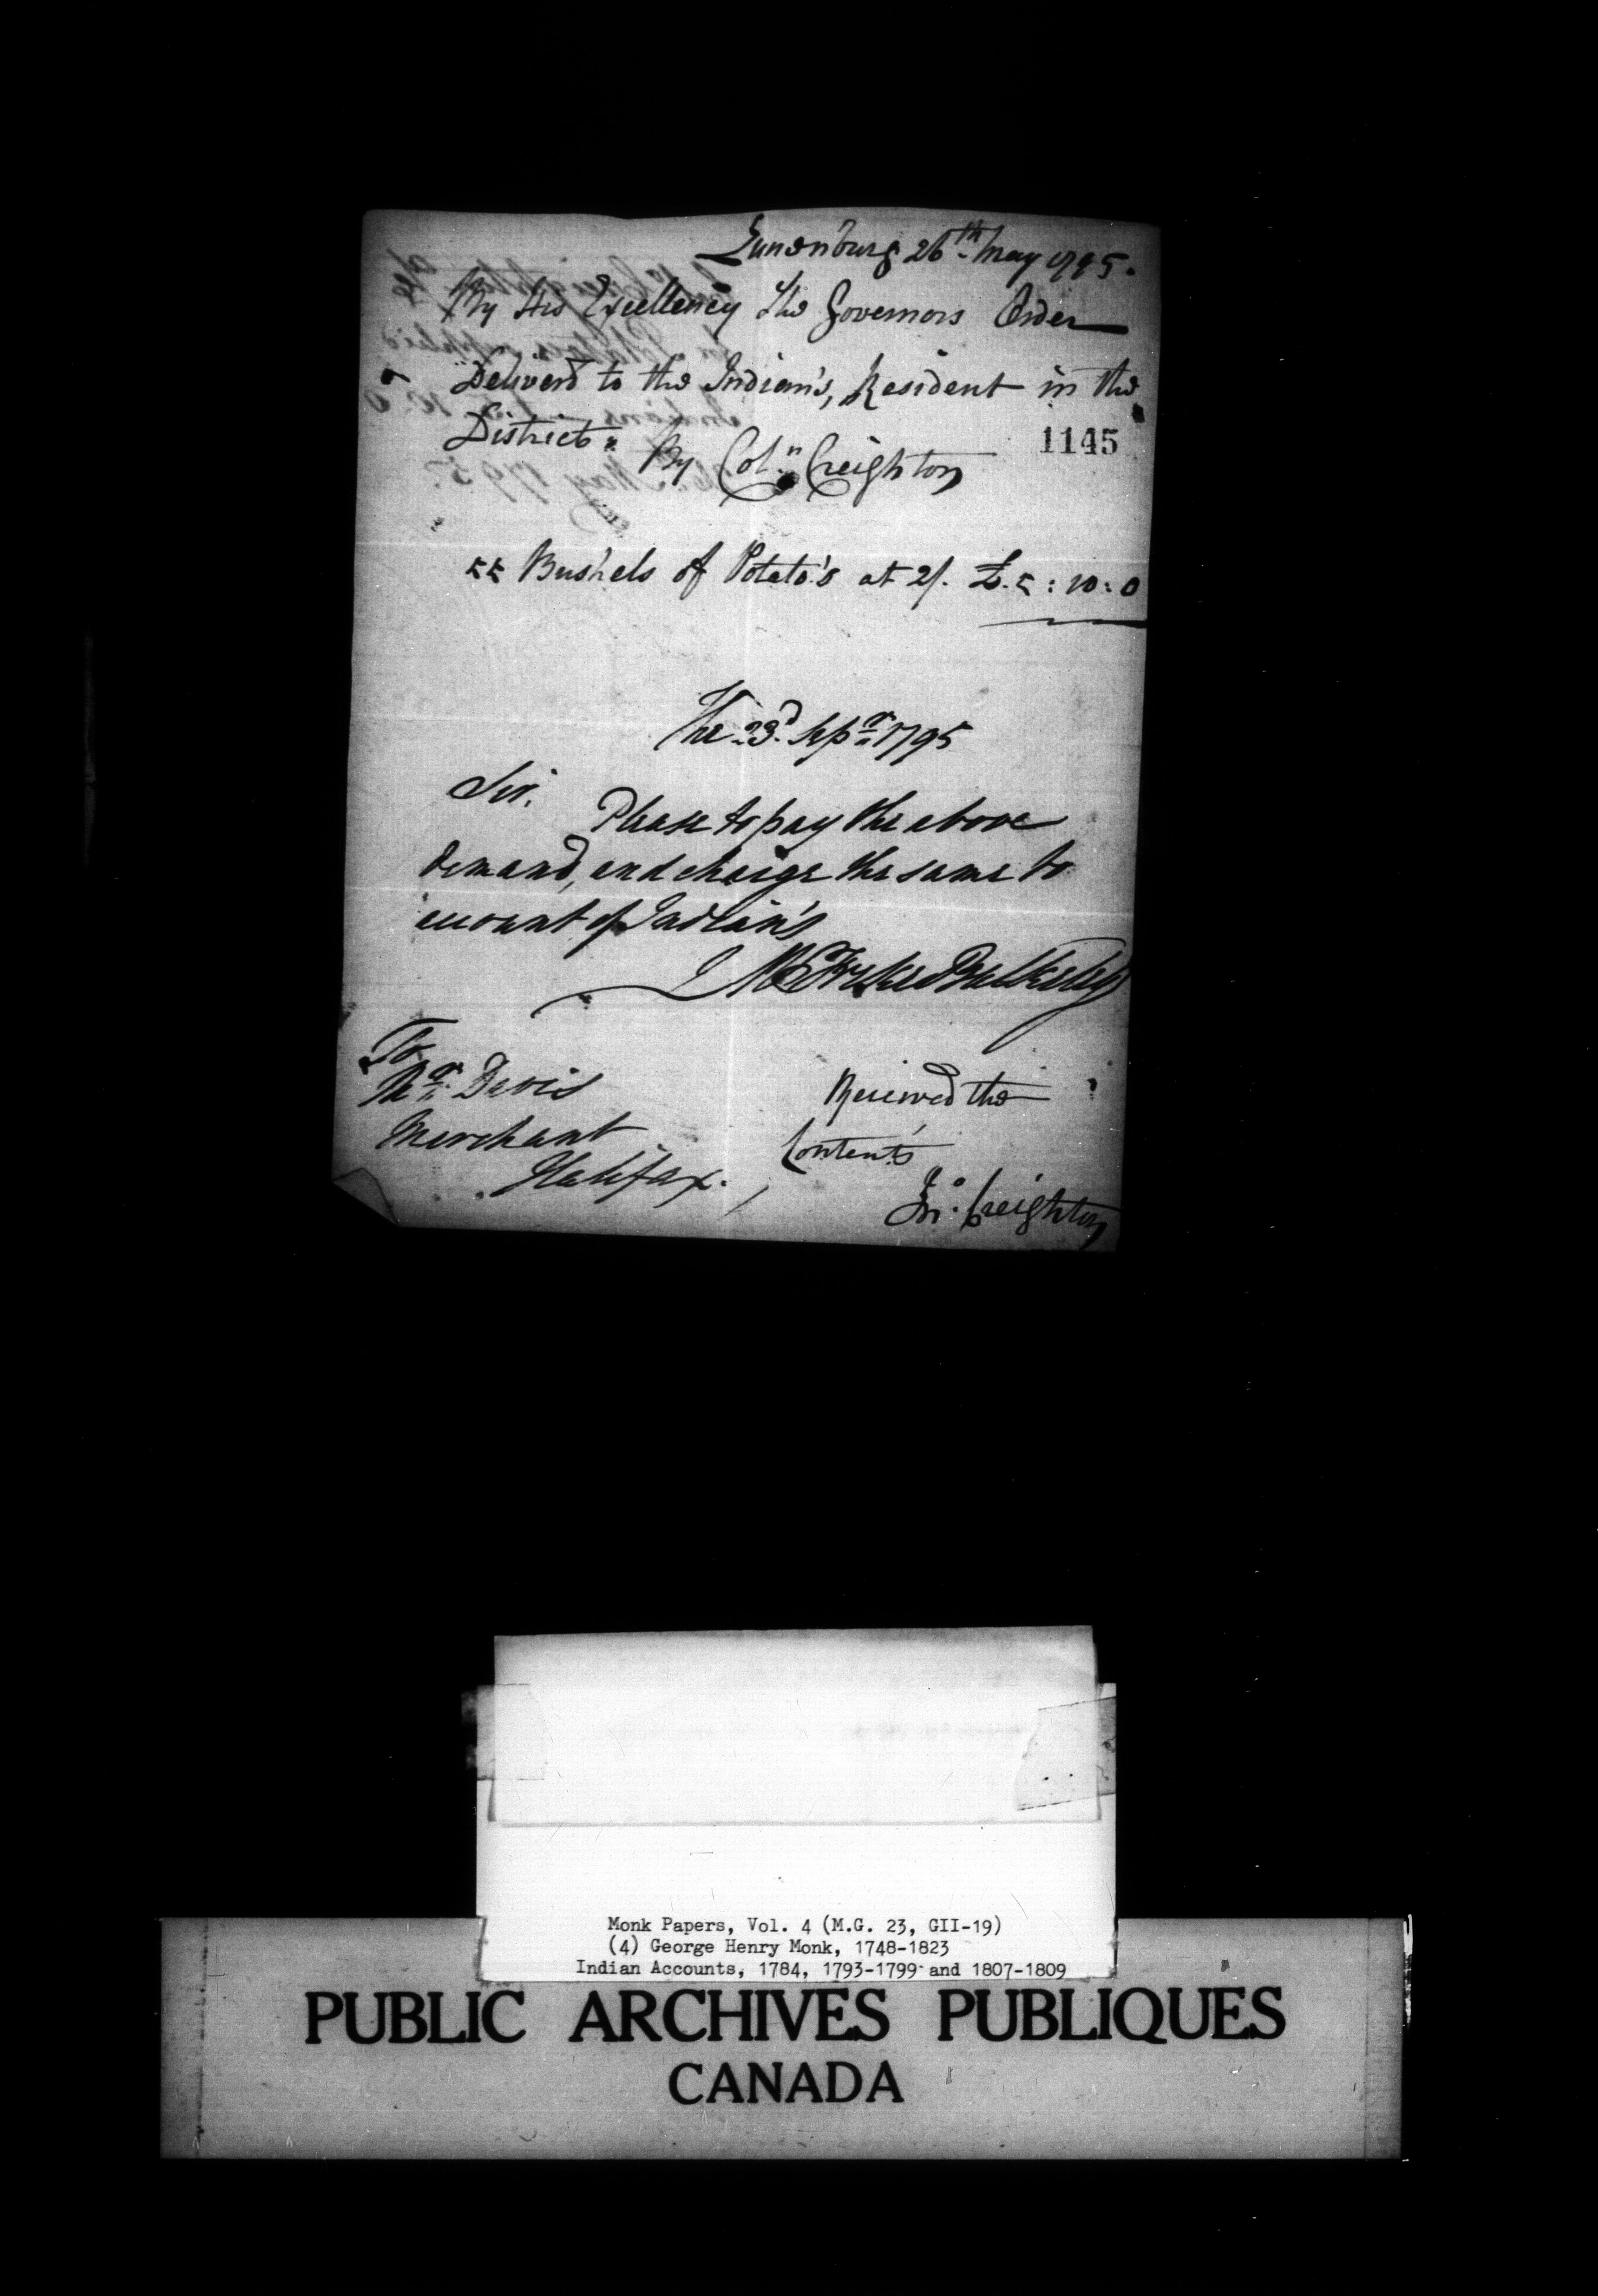 Lunenburg 26th May 1795.
By His Excellency the Governors Order
Deliverd to the Indian's, Resident in the
District" By Coln Creighton
1145
55 Bushels of Potato's at 2/. £.5:10:0
The 23d Sepr 1795
Sir.
Please to pay the above
demand, and charge the same to
account of Indian's
J M Freke Bulkeley
To
Mr Davis
Merchant
Halifax.
Received the
Contents
Jno. Creighton
Monk Papers, Vol. 4 (M.G. 23, GII-19)
(4) George Henry Monk, 1748-1823
Indian Accounts, 1784, 1793-1799 and 1807-1809
PUBLIC ARCHIVES PUBLIQUES
CANADA